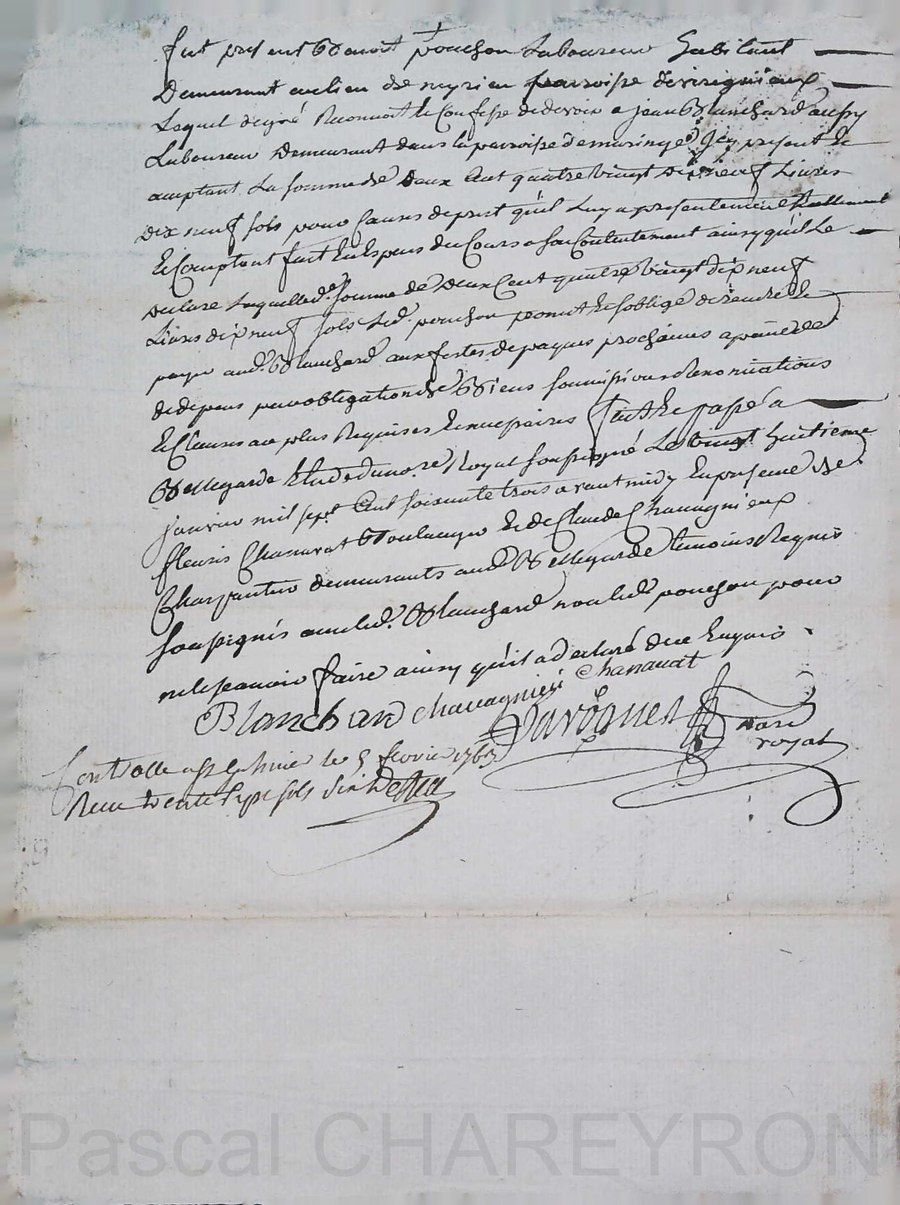 fut present Benoit pouchon Laboureur habitant
Demeurant au lieu de meyrieu parroisse de viregnieux
Lequel degré Reconnoit et Confesse de devoir a jean Blanchard aussy
Laboureur Demeurant dans la parroisse de maringes Icy present et
acceptant La somme de Deux Cent quatre vingt Dix neuf Livres
Dix neuf sols pour Causes de prest qu'il Luy a presentement Reellement
et Comptant fait En Especes du Cours a son Contentement ainsy qu'il Le
declare Laquelle de. somme de Deux Cent quatre vingt dix neuf
Livres dix neuf sols Led. pouchon promet et soblige de rendre et
payer aud. Blanchard aux festes de paques prochaines a peine de
de depens par obligation de Biens soumissions Renonciations
et Clauses au plus Requises et necessaires fait et passé a
Bellegarde Etude du no.re Royal soussigné Le vingt huitieme
janvier mil sept Cent soixante trois avant midy En presence de
fleuris Chanavat Boulanger et de Claude Chavagnieux
Charpentier demeurants aud. Bellegarde temoins Requis
soussignés avec led. Blanchard non led. pouchon pour
ne le scavoir faire ainsy qu'il a declaré de ce Enquis .
Blanchard chavagnieu Chanavat
Notaire
royal
Controllé a le 5 fevrier 1763
Receu trente sept sols six
Pascal CHAREYRON